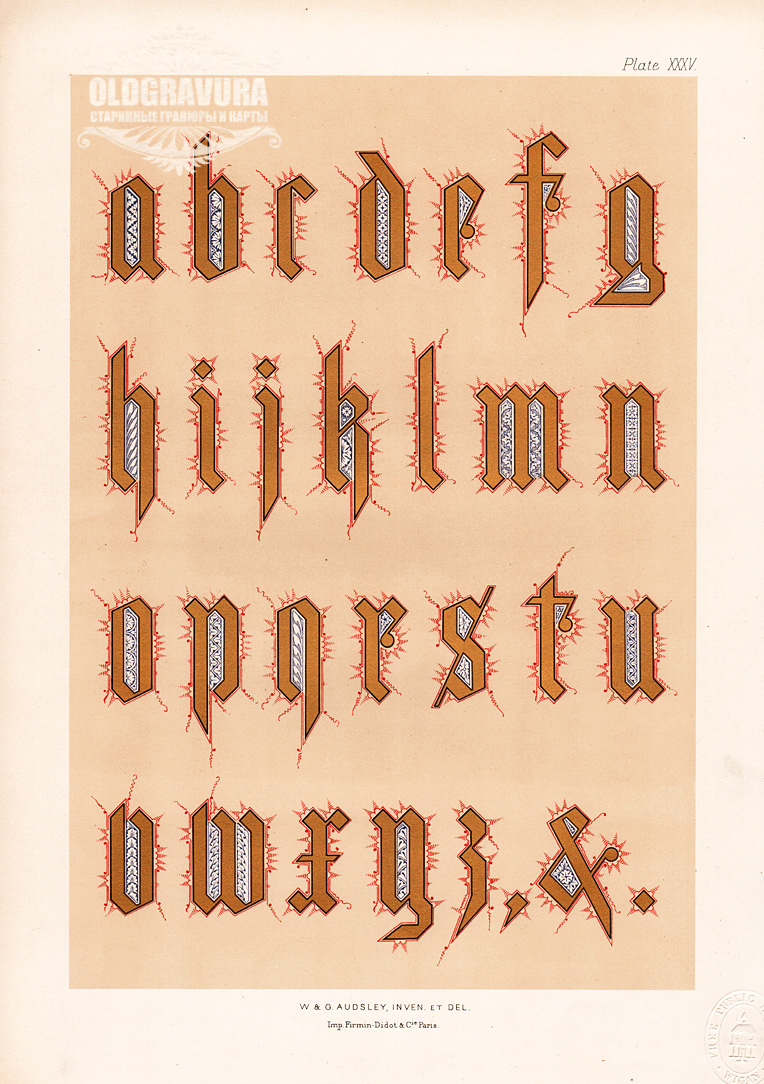 Plate XXXV.
OLDGRAVURA
СТАРИННЫЕ ГРАВЮРЫ И КАРТЫ
a b c d e f g
h i j k l m n
o p q r s t u
v w x y z , & .
W & G. AUDSLEY, INVEN. ET DEL.
Imp. Firmin-Didot & Cie Paris.
FREE PUBLIC
WIGAN